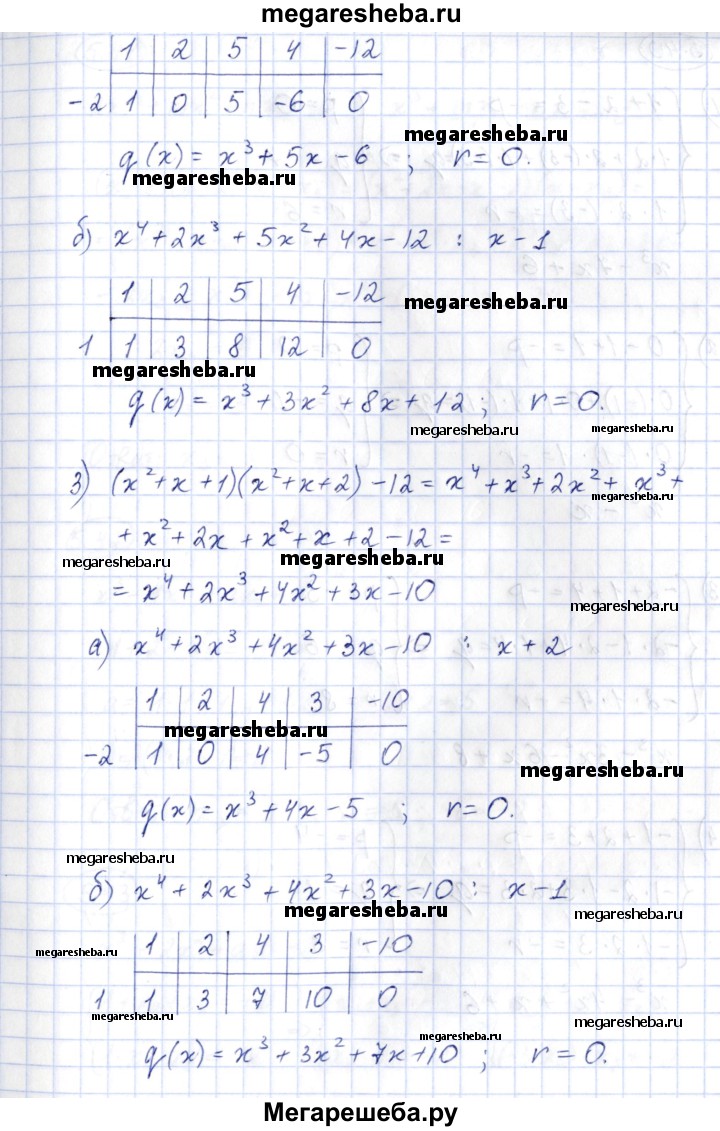 megaresheba.ru
1 2 5 4 -12
-2 1 0 5 -6 0
megaresheba.ru
q(x) = x³ + 5x - 6 ; r = 0.
megaresheba.ru
б) x⁴ + 2x³ + 5x² + 4x - 12 : x - 1
1 2 5 4 -12
megaresheba.ru
1 1 3 8 12 0
megaresheba.ru
q(x) = x³ + 3x² + 8x + 12 ; r = 0.
megaresheba.ru megaresheba.ru
3) (x² + x + 1)(x² + x + 2) - 12 = x⁴ + x³ + 2x² + x³ +
megaresheba.ru
+ x² + 2x + x² + x + 2 - 12 =
megaresheba.ru megaresheba.ru
= x⁴ + 2x³ + 4x² + 3x - 10
megaresheba.ru
а) x⁴ + 2x³ + 4x² + 3x - 10 : x + 2
1 2 4 3 -10
megaresheba.ru
-2 1 0 4 -5 0
megaresheba.ru
q(x) = x³ + 4x - 5 ; r = 0.
megaresheba.ru
б) x⁴ + 2x³ + 4x² + 3x - 10 : x - 1
megaresheba.ru megaresheba.ru
1 2 4 3 -10
megaresheba.ru
1 1 3 7 10 0
megaresheba.ru megaresheba.ru
megaresheba.ru
q(x) = x³ + 3x² + 7x + 10 ; r = 0.
Мегарешеба.ру